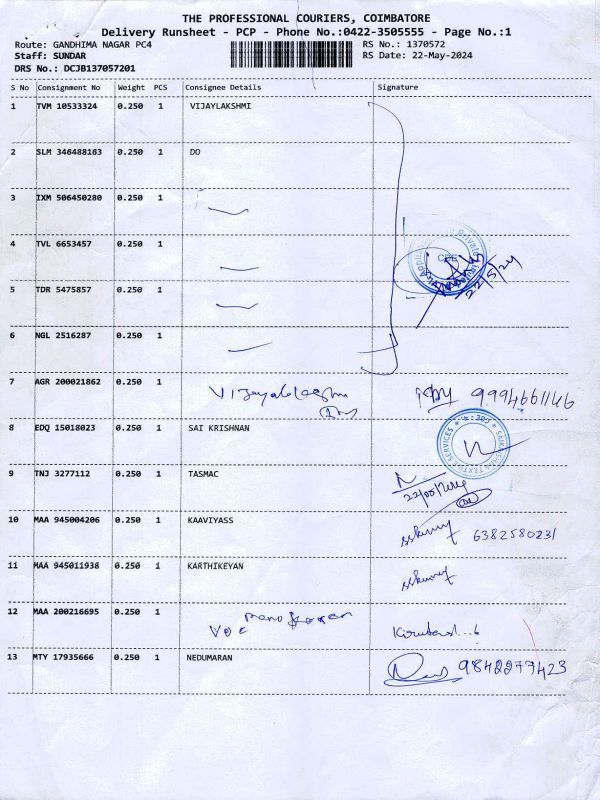 THE PROFESSIONAL COURIERS, COIMBATORE
Delivery Runsheet - PCP - Phone No.:0422-3505555 - Page No.:1
Route: GANDHIMA NAGAR PC4 RS No.: 1370572
Staff: SUNDAR RS Date: 22-May-2024
DRS No.: DCJB137057201
S No Consignment No Weight PCS Consignee Details Signature
1 TVM 10533324 0.250 1 VIJAYLAKSHMI
2 SLM 346488163 0.250 1 DO
3 IXM 506450280 0.250 1
4 TVL 6653457 0.250 1
CBE
22/5/24
5 TDR 5475857 0.250 1
6 NGL 2516287 0.250 1
7 AGR 200021862 0.250 1 Vijayalakshmi 9994661146
8 EDQ 15018023 0.250 1 SAI KRISHNAN
9 TNJ 3277112 0.250 1 TASMAC
22/05/2024
10 MAA 945004206 0.250 1 KAAVIYASS 6382580231
11 MAA 945011938 0.250 1 KARTHIKEYAN
12 MAA 200216695 0.250 1 manokaran
VOC
13 MTY 17935666 0.250 1 NEDUMARAN 9842277423